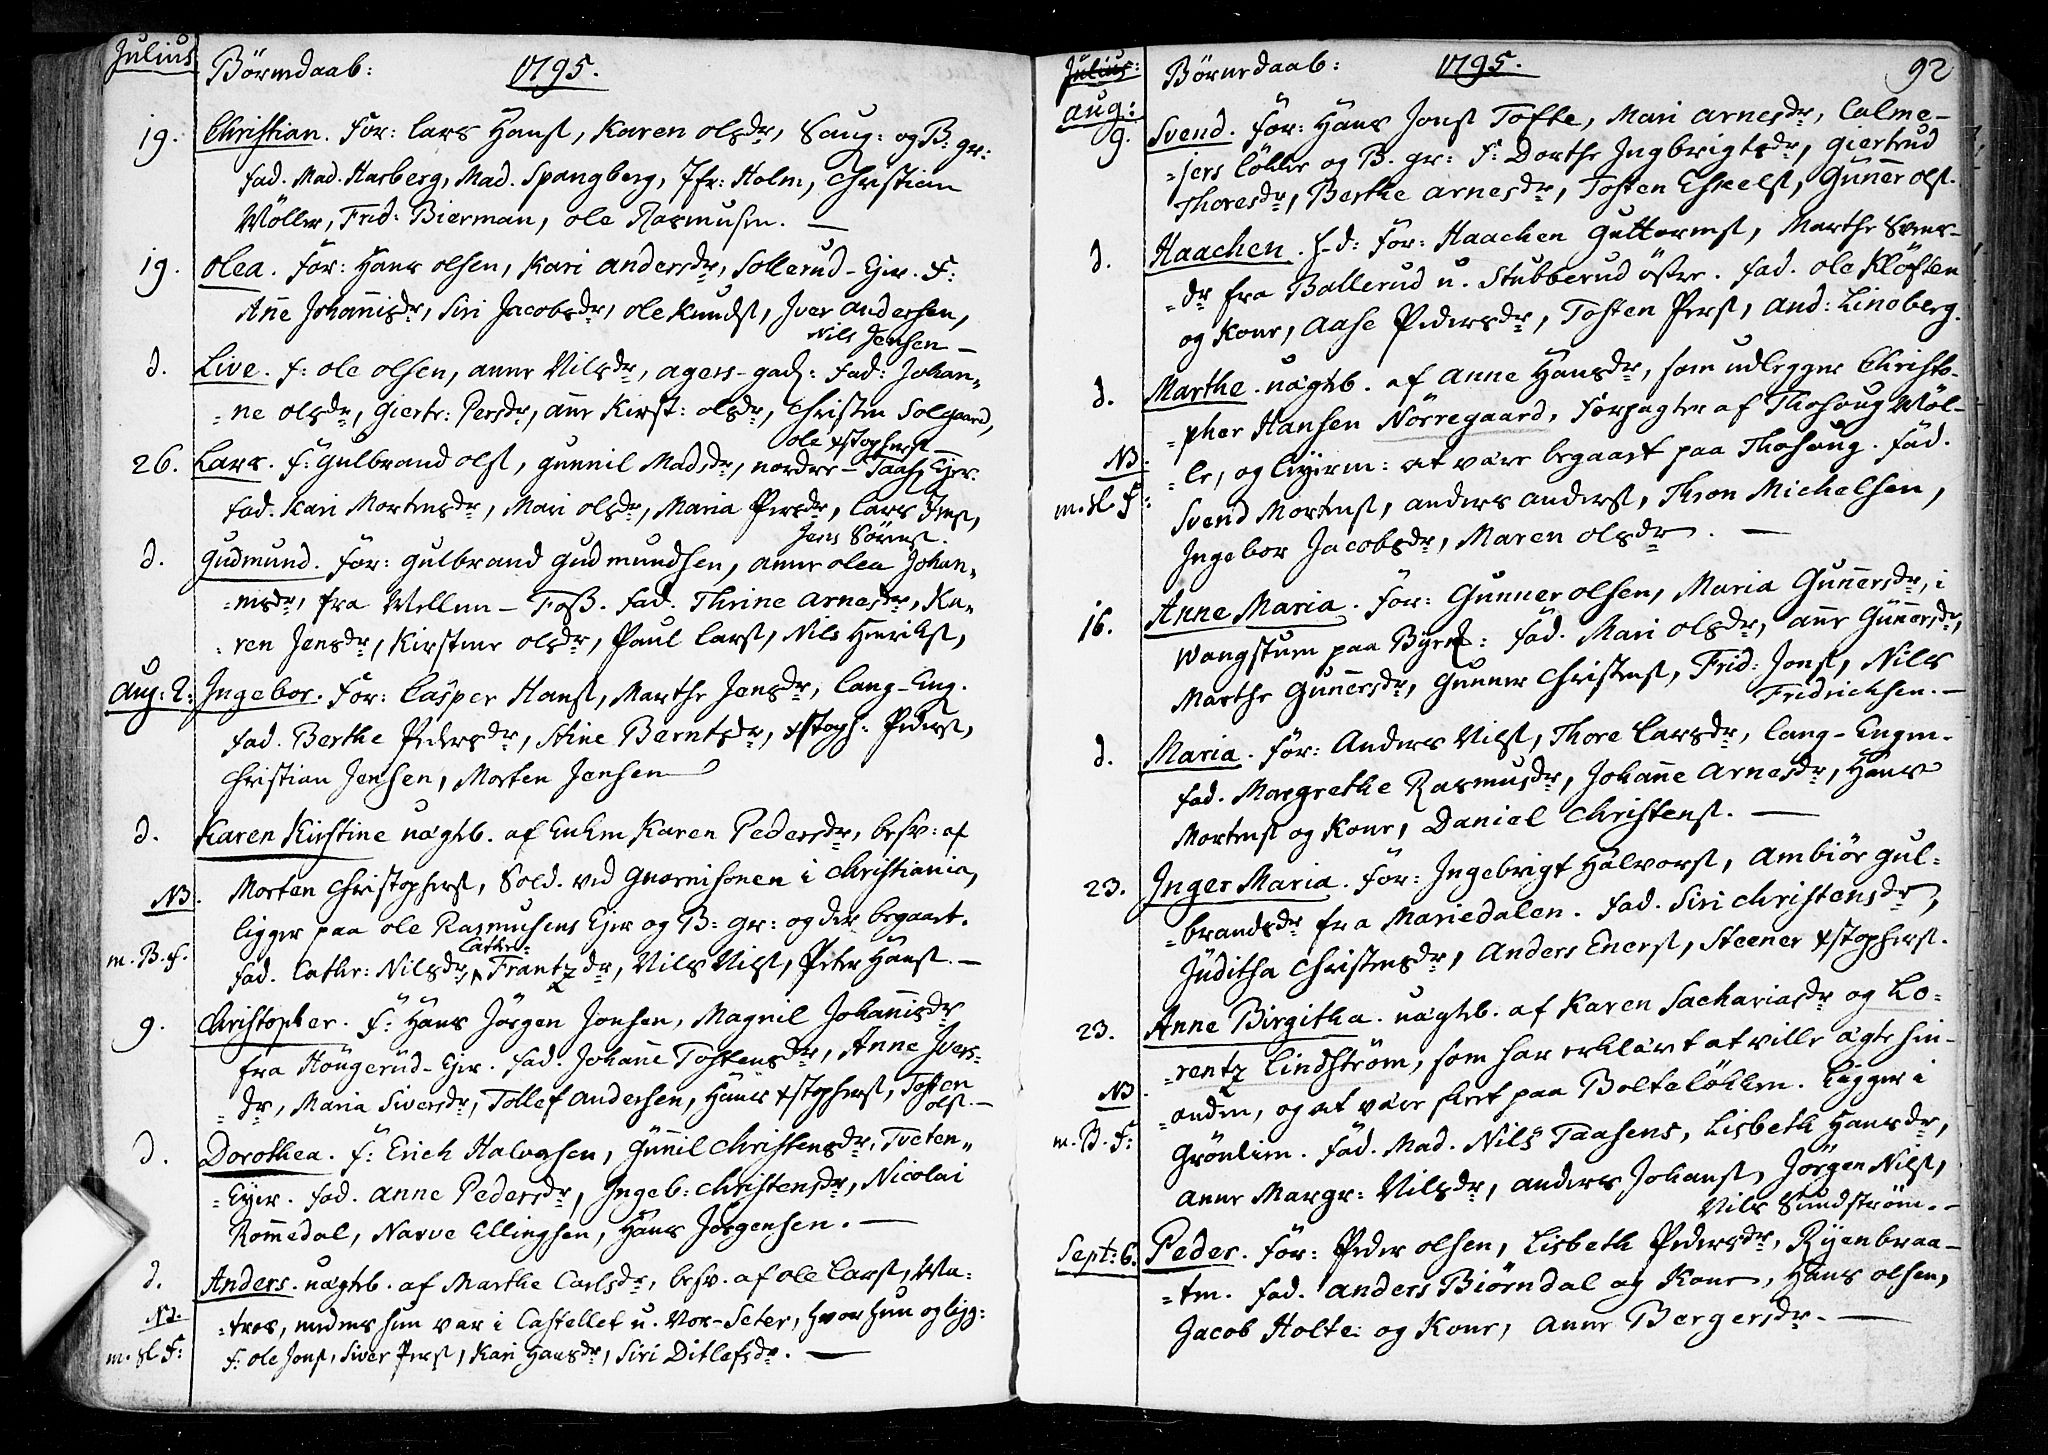 Julius
Börnedaab: 1795.
19. Christian. For: Lars Hans&, Karen olsdr, Saug: og B: gr:
fad. Mad. Harberg, Mad. Spangberg, Jfr: Holm, Christian
Möller, Frid: Bierman, ole Rasmusen. —
19. Olea. For: Hans olsen, Kari andersdr, Sollerud-Ejer. F:
Anne Johannisdr, Siri Jacobsdr, ole Knuds, Iver andersen,
Nils Jensen —
d. Live. f: ole olsen, anne Nilsdr, agers-gad: fad: Johan=
=ne olsdr, Giertr: Persdr, anne Kirst: olsdr, Christen Solgaard,
ole Xstophers —
26. Lars. f: Gulbrand ols, gunnil Madsdr, nordre-Taasz Ejer.
fad. Kari Mortensdr, Mari olsdr, Maria Persdr, Lars Jens,
Jens Sörens.
d. Gudmund. For: gulbrand Gudmundsen, anne olea Johan=
=nisdr, fra Mellum-Foss. fad. Thrine Arnesdr, Ka=
=ren Jensdr, Kirstine olsdr, Paul Lars, Nils Henriks,
Aug: 2: Ingebor. For: Casper Hans, Marthe Jensdr, Lang-Eng.
fad. Berthe Pedersdr, Stine Berntsdr, Xstoph: Peders,
Christian Jensen, Morten Jensen
d. Karen Kirstine uægtb. af Enken Karen Pedersdr, besv: af
NB. Morten Christophers, Sold. ved Guarnisonen i Christiania,
ligger paa ole Rasmusens Ejer og B: gr: og der begaaet.
Cathr:
m. B. f. fad. Cathr: Nilsdr, Frantzdr, Nils Nils, Peter Hans. —
9. Christopher. F: Hans Jörgen Jonsen, Magnil Johannisdr
fra Höugerud-Ejer. fad. Johanne Tostensdr, Anne Ivers=
=dr, Maria Siversdr, Tollef Andersen, Hans Xstophers, Tosten
ols. —
d. Dorothea. F: Erich Halvorsen, Gunnil Christensdr, Tveten=
=Ejer. fad. Anne Pedersdr, Ingeb: Christensdr, Nicolai
Rommedal, Narve Ellingsen, Hans Jörgensen. —
d. Anders. uægtb. af Marthe Carlsdr, besv. af ole Lars, Ma=
NB. =tros, medens hun var i Castellet u. Vor-Seter, hvor hun og ligg:
m. sl. F: F: ole Jons, Siver Pers, Kari Hansdr, Siri Ditlefsdr. —
Julius:
Börnedaab: 1795. 92
Aug:
9. Svend. For: Hans Jons Tofte, Mari Arnesdr, Calme-
=jers Lökke og B. gr: F: Dorthe Ingbrigtsdr, Giertrud
Thoresdr, Berthe Arnesdr, Tosten Eskels, Gunner ols.
d. Haachen. f-d: For: Haachen Guttorms, Marthe Svens-
=dr fra Ballerud u. Stubberud östre. fad. ole Klöften
og Kone, Aase Pedersdr, Tosten Pers, And: Lindberg.
d. Marthe. uægtb. af Anne Hansdr, som udlegger Christo-
=pher Hansen Nörregaard, Forpagter af Thosoug Möl-
NB. =le, og Lejerm: at være begaaet paa Thosoug. fad.
m. sl. F: Svend Mortens, Anders Anders, Thron Michelsen,
Ingebor Jacobsdr, Maren olsdr. —
16. Anne Maria. For: Gunner olsen, Maria Gunnersdr, i
Wangstuen paa Bÿen: fad. Mari olsdr, Anne Gunnersdr,
Marthe Gunnersdr, Gunner Christens, Frid: Jons, Nils
Fridrichsen. —
d. Maria. For: Anders Nils, Thore Larsdr, Lang-Engen.
fad. Margrethe Rasmusdr, Johanne Arnesdr, Hans
Mortens og Kone, Daniel Christens. —
23. Inger Maria. For: Ingebrigt Halvors, Ambiör Gul=
=brandsdr fra Mariedalen. fad. Siri Christensdr,
Juditha Christensdr, Anders Eners, Steener Xstophers.
23. Anne Birgitha. uægtb. af Karen Sachariasdr og Lo=
=rentz Lindström, som har erklært at ville ægte hin-
NB. =anden, og at være skeet paa Bolteløkken. Ligger i
m. B. F: Grönlien. fad. Mad. Nils Taasens, Lisbeth Hansdr,
Anne Margr: Nilsdr, Anders Johans, Jörgen Nils,
Nils Sundström. —
Sept: 6. Peder. For: Peder olsen, Lisbeth Pedersdr, Rÿenbraa-
=ten. fad. Anders Biörndal og Kone, Hans olsen,
Jacob Holte og Kone, Anne Bergersdr. —